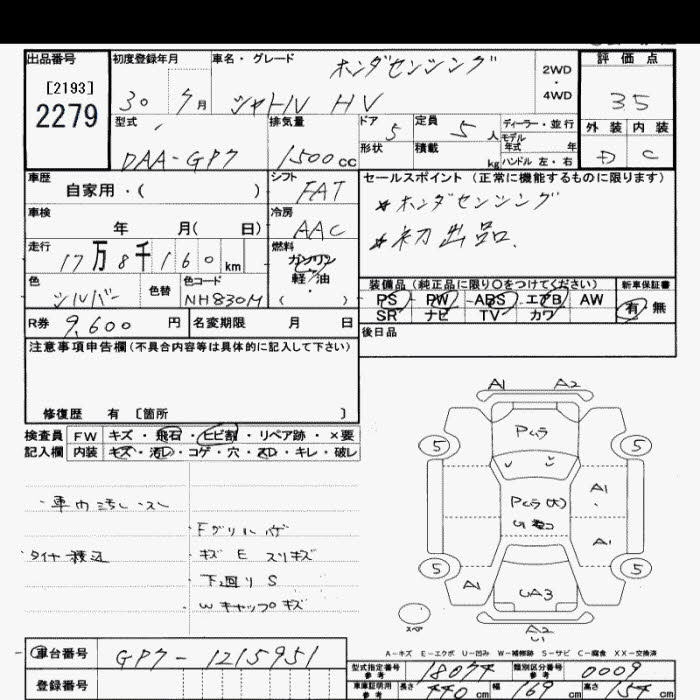 出品番号
[2193]
2279
初度登録年月
30 7月
車名・グレード
ホンダセンシング
シャトル HV
2WD
・
4WD
評価点
35
外装 内装
D C
型式
DAA-GP7
排気量
1500cc
ドア 5
形状
定員 5人
積載 kg
ディーラー・並行
モデル年式 年
ハンドル 左・右
車歴
自家用・( )
シフト
FAT
車検
年 月( 日)
冷房
AAC
走行
17万8千160km
燃料
ガソリン
軽・油
( ・ )
色
シルバー
色替
色コード
NH830M
R券 9,600円
名変期限 月 日
セールスポイント (正常に機能するものに限ります)
*ホンダセンシング
*初出品.
装備品(純正品に限り○をつけてください)
PS PW ABS エアB AW
SR ナビ TV カワ
新車保証書
有・無
後日品
注意事項申告欄(不具合内容等は具体的に記入して下さい)
修復歴 有 〔箇所 〕
検査員
記入欄
FW キズ・飛石・ヒビ割・リペア跡・×要
内装 キズ・汚れ・コゲ・穴・スレ・キレ・破レ
・車内汚レ・スレ
・Fグリルハゲ
・タイヤ積込
・キズ E スリキズ
・下廻り S
・Wキャップキズ
A1 A2
Pムラ
5 5
Pムラ(大)
A1
A1
5 5
A1
UA3
スペア
A2
U1
A-キズ E-エクボ U-凹み W-補修跡 S-サビ C-腐食 XX-交換済
車台番号 GP7-1215951
登録番号
型式指定番号
参考
18074
類別区分番号
参考
0009
車庫証明用
参考
長さ 440cm
幅 169cm
高さ 154cm